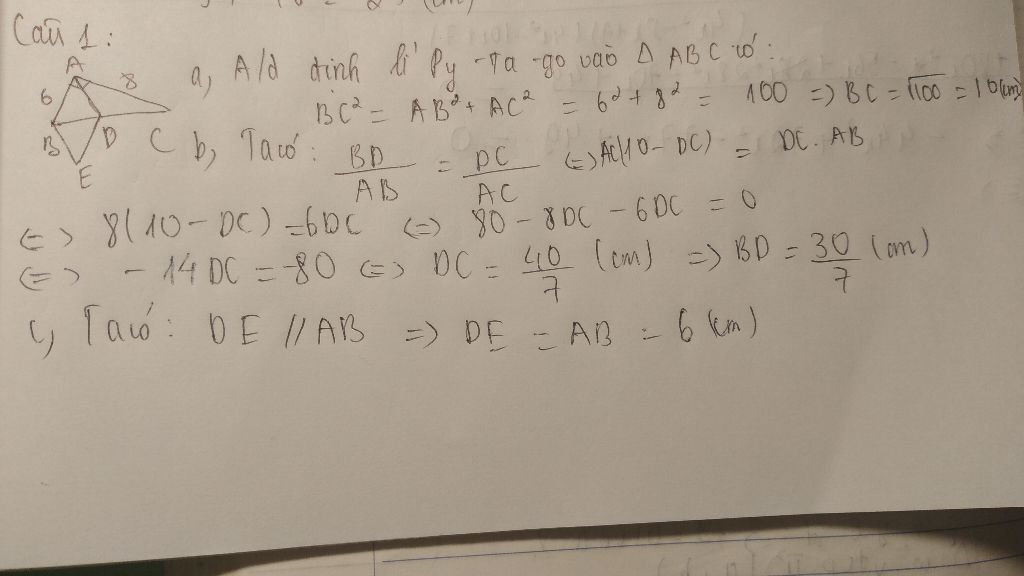 Câu 1:
A 8 6 B D C E
a, A/d định lí Py-Ta-go vào Δ ABC có:
BC² = AB² + AC² = 6² + 8² = 100 => BC = √100 = 10(cm)
b, Ta có: BD/AB = DC/AC <=> AC(10 - DC) = DC. AB
<=> 8(10 - DC) = 6DC <=> 80 - 8DC - 6DC = 0
<=> - 14DC = -80 <=> DC = 40/7 (cm) => BD = 30/7 (cm)
c, Ta có: DE // AB => DE = AB = 6 (cm)